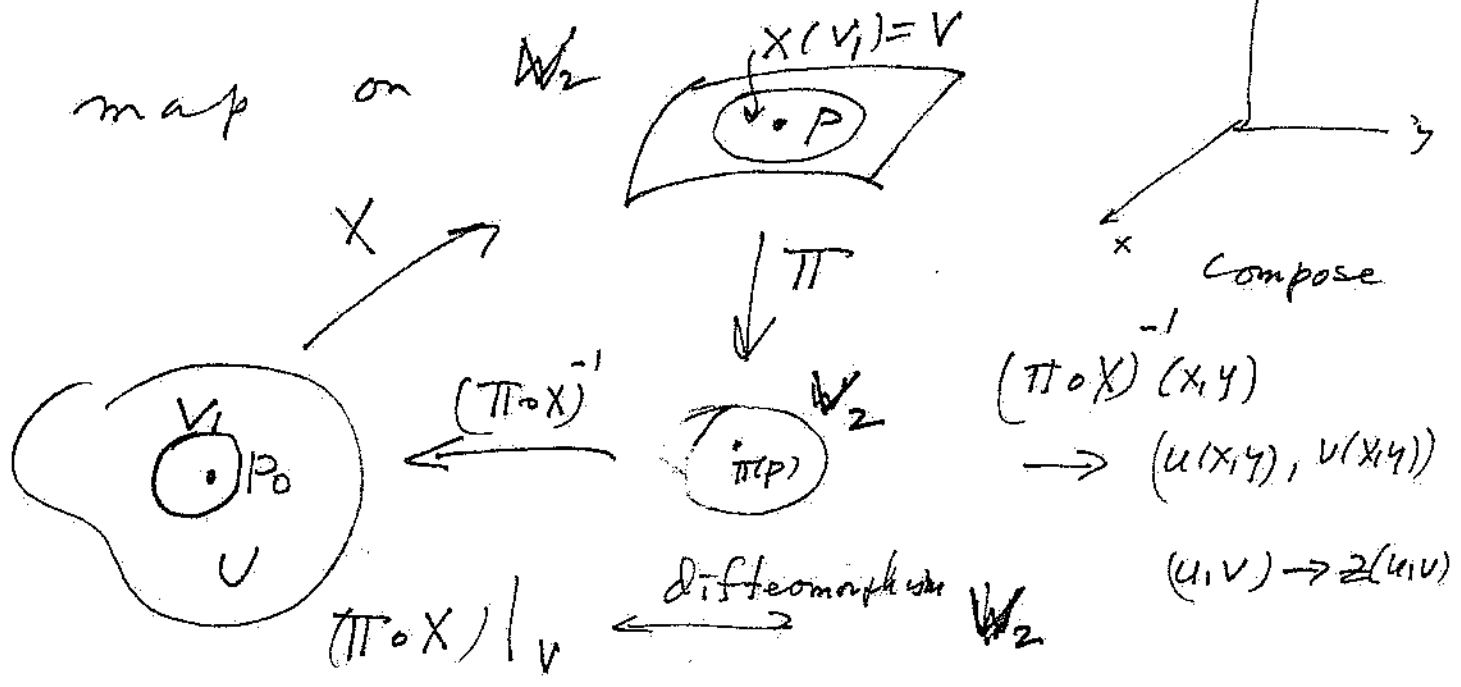 map on W₂
X(V₁)=V
• P
y
x
X
π
Compose
(π∘X)⁻¹
W₂
(π∘X)⁻¹(x,y)
V₁
P₀
π(p)
→ (u(x,y), v(x,y))
U
(u,v) → z(u,v)
(π∘X)|ᵥ ⟷ diffeomorphism W₂